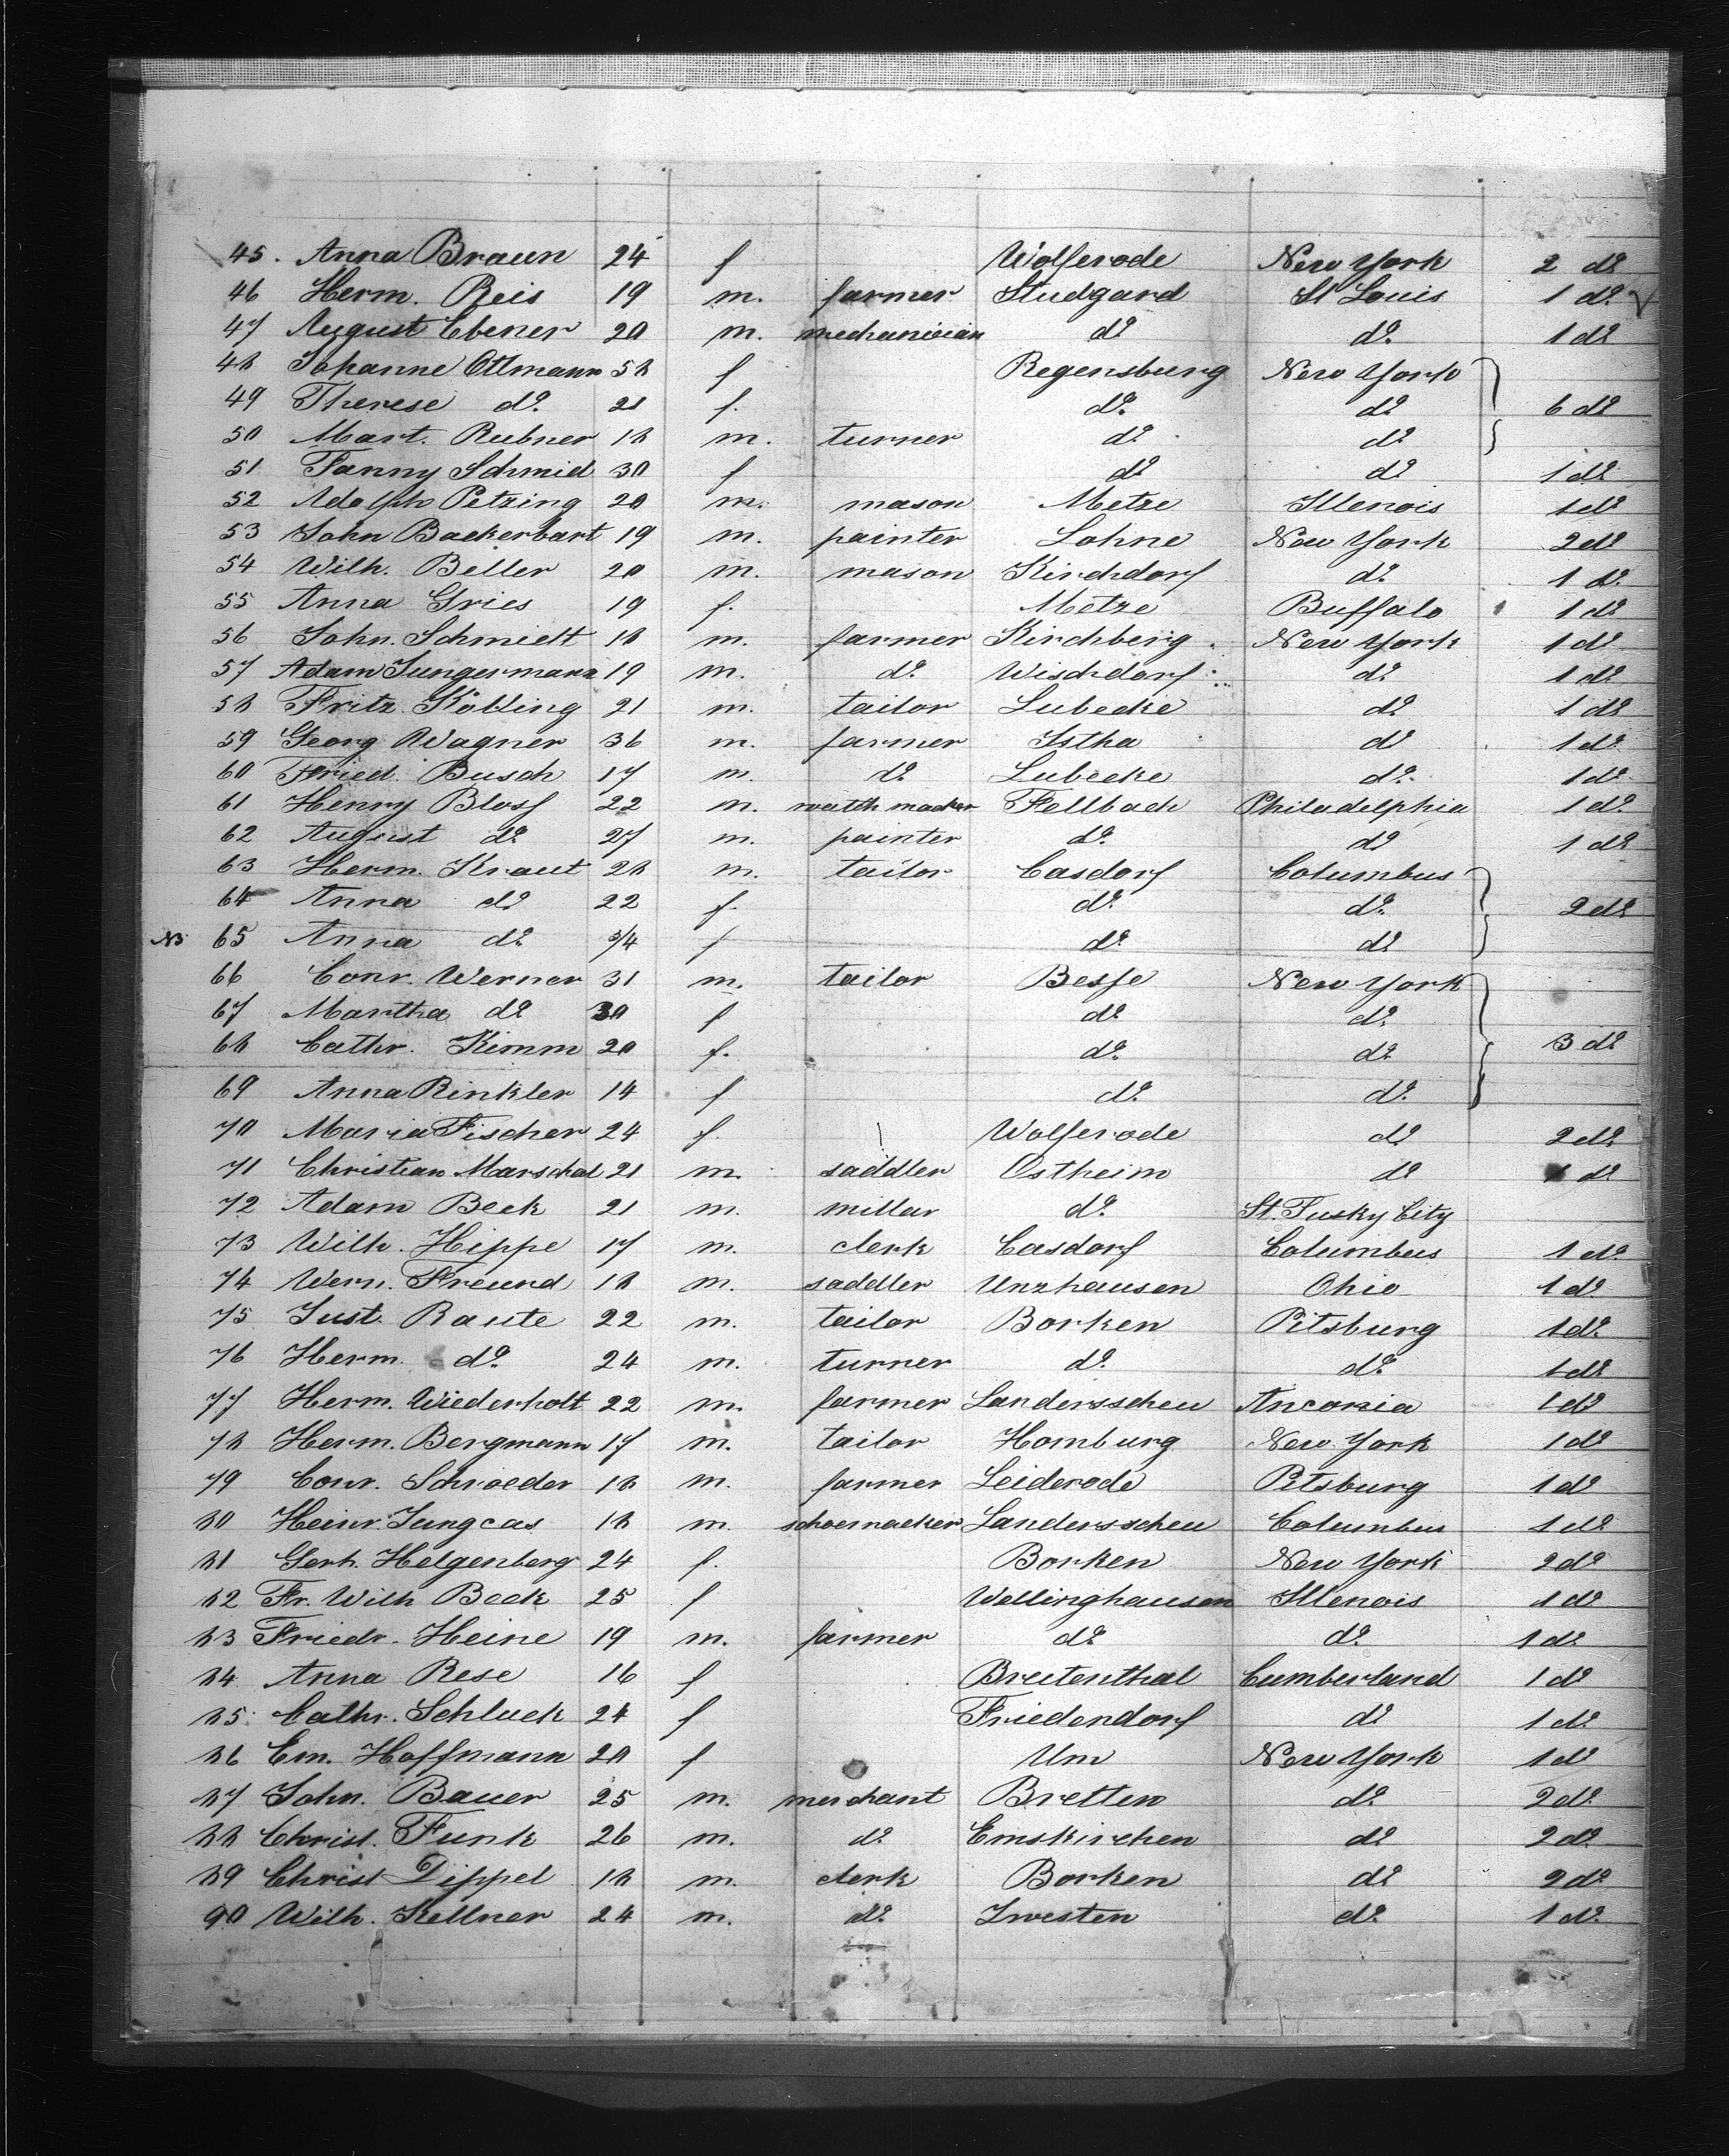 45. Anna Braun 24 f Wolferode New York 2 do
46 Herm. Reis 19 m. farmer Studgard St Louis 1 do
47 August Ebener 20 m. mechanician do do 1 do
48 Johanne Ottmann 58 f Regensburg New York
49 Therese do 21 f. do do 6 do
50 Mart. Rubner 18 m. turner do do
51 Fanny Schmid 30 f do do 1 do
52 Adolph Petzing 20 m. mason Metze Illenois 1 do
53 John Backerbart 19 m. painter Lohne New York 2 do
54 Wilh. Beller 20 m. mason Kirchdorf do 1 do
55 Anna Gries 19 f. Metze Buffalo 1 do
56 John. Schmidt 18 m. farmer Kirchberg New York 1 do
57 Adam Jungermann 19 m. do Wischdorf do 1 do
58 Fritz Kölling 21 m. tailor Lubecke do 1 do
59 Georg Wagner 36 m. farmer Istha do 1 do
60 Fried. Busch 17 m. do Lubecke do 1 do
61 Henry Bloss 22 m. watch macker Fellbach Philadelphia 1 do
62 August do 27 m. painter do do 1 do
63 Herm. Kraut 28 m. tailor Casdorf Columbus
64 Anna do 22 f. do do 2 do
NB 65 Anna do 3/4 f do do
66 Conr. Werner 31 m. tailor Besse New York
67 Martha do 30 f do do
68 Cathr. Kimm 20 f. do do 3 do
69 Anna Rinkler 14 f do do
70 Maria Fischer 24 f. Wolferode do 2 do
71 Christian Marschal 21 m. saddler Ostheim do 1 do
72 Adam Beck 21 m. millar do St. Fusky City
73 Wilh. Hippe 17 m. clerk Casdorf Columbus 1 do
74 Wern. Freund 18 m. saddler Unzhausen Ohio 1 do
75 Just. Raute 22 m. tailor Borken Pitsburg 1 do
76 Herm. do 24 m. turner do do 1 do
77 Herm. Wiederholt 22 m. farmer Landersscheu Anconia 1 do
78 Herm. Bergmann 17 m. tailor Homburg New York 1 do
79 Conr. Schroeder 18 m. farmer Leiderode Pitsburg 1 do
80 Heinr. Jungcas 18 m. schoemacker Landersscheu Columbus 1 do
81 Gerh. Helgenberg 24 f. Borken New York 2 do
82 Fr. Wilh Beck 25 f Wellinghausen Illenois 1 do
83 Friedr. Heine 19 m. farmer do do 1 do
84 Anna Rese 16 f Breitenthal Cumberland 1 do
85 Cathr. Schluck 24 f Friedendorf do 1 do
86 Em. Hoffmann 20 f Um New York 1 do
87 John. Bauer 25 m. merchant Bretten do 2 do
88 Christ. Funk 26 m. do Emskirchen do 2 do
89 Christ Dippel 18 m. clerk Borken do 2 do
90 Wilh. Kellner 24 m. do Zwesten do 1 do